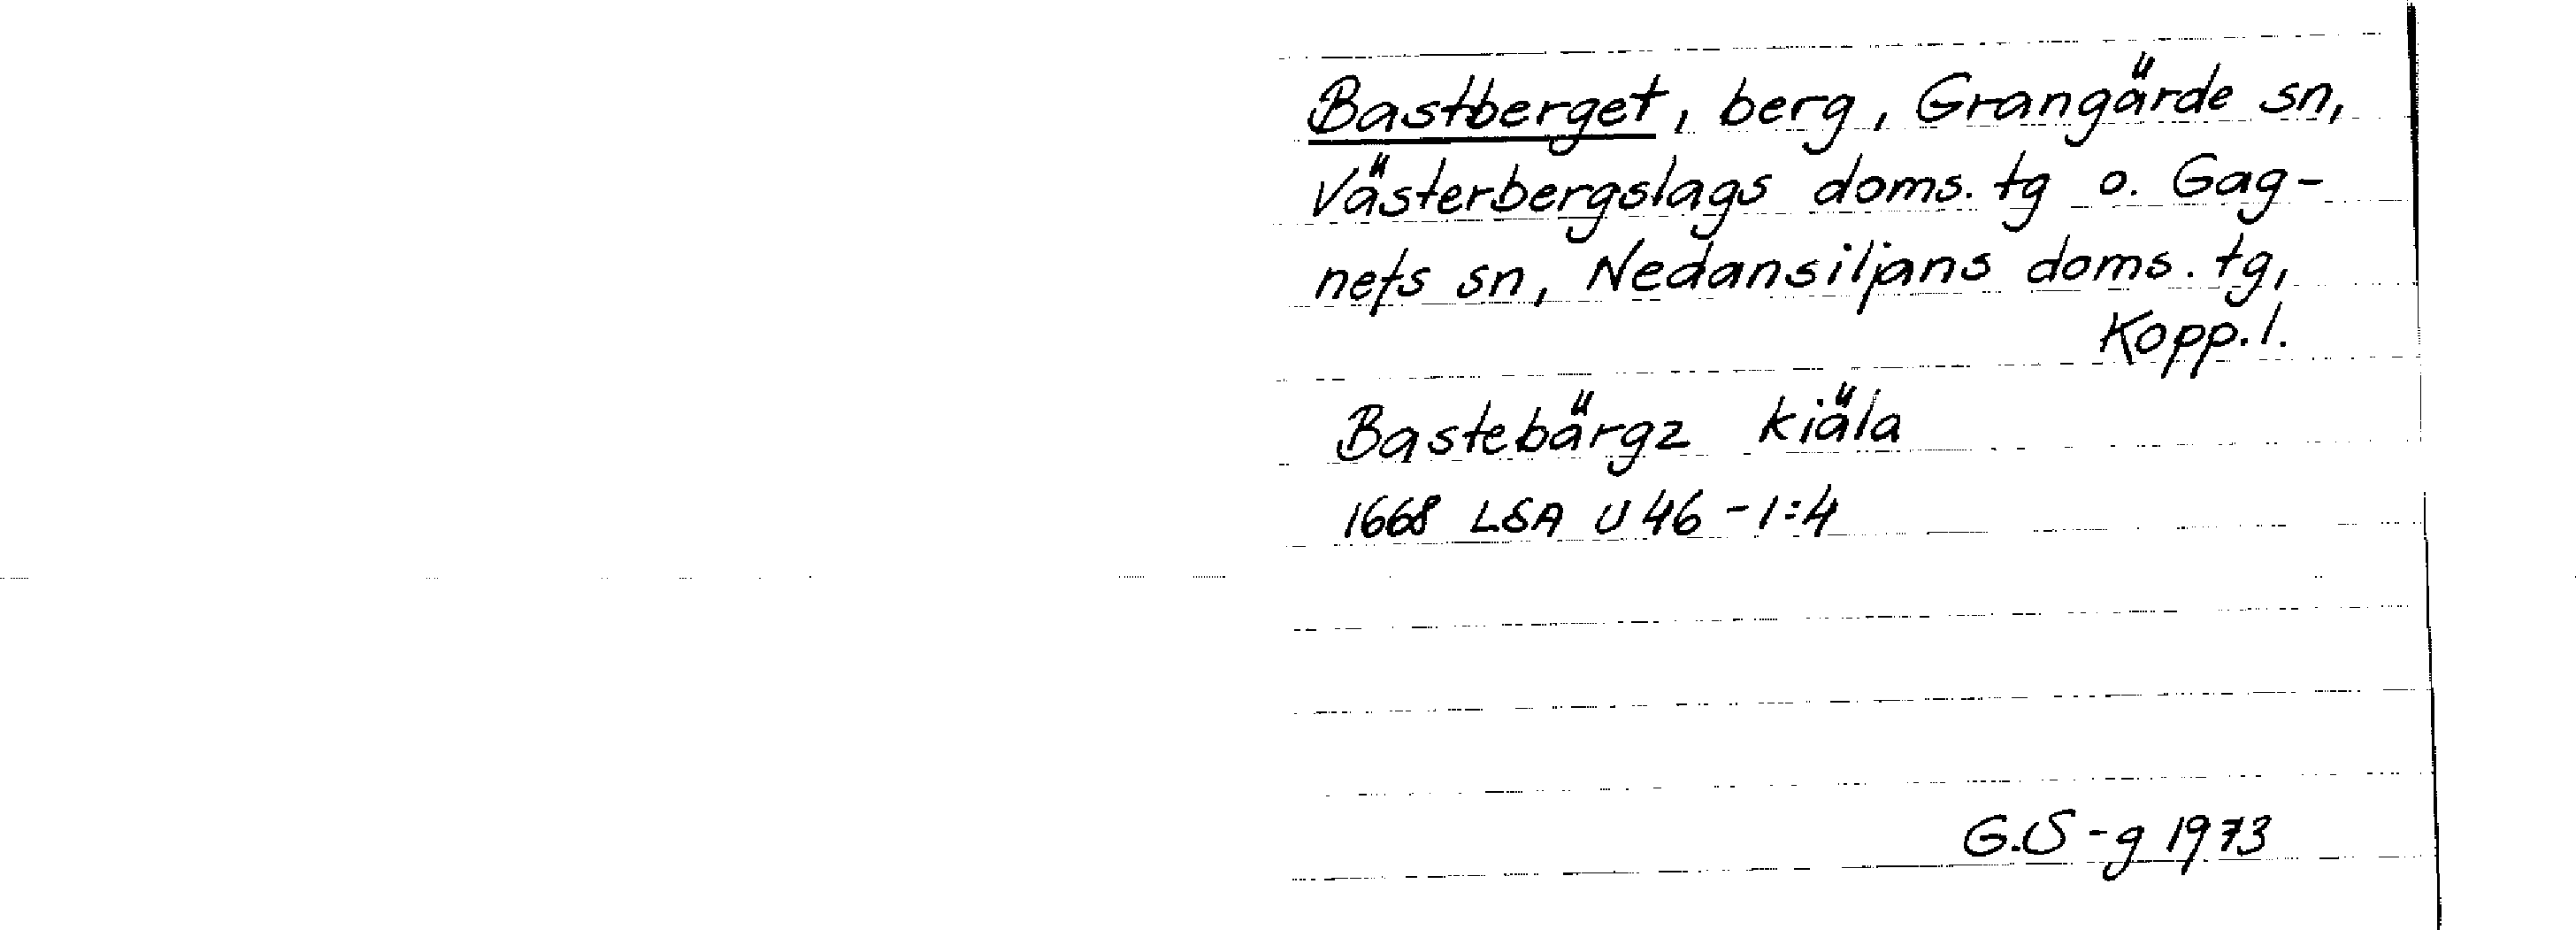 Bastberget, berg, Grangärde sn,
Västerbergslags doms. tg o. Gag-
nefs sn, Nedansiljans doms. tg,
Kopp. l.
Bastebärgz kiäla
1668 LSA U 46 - 1:4
G.S-g 1973